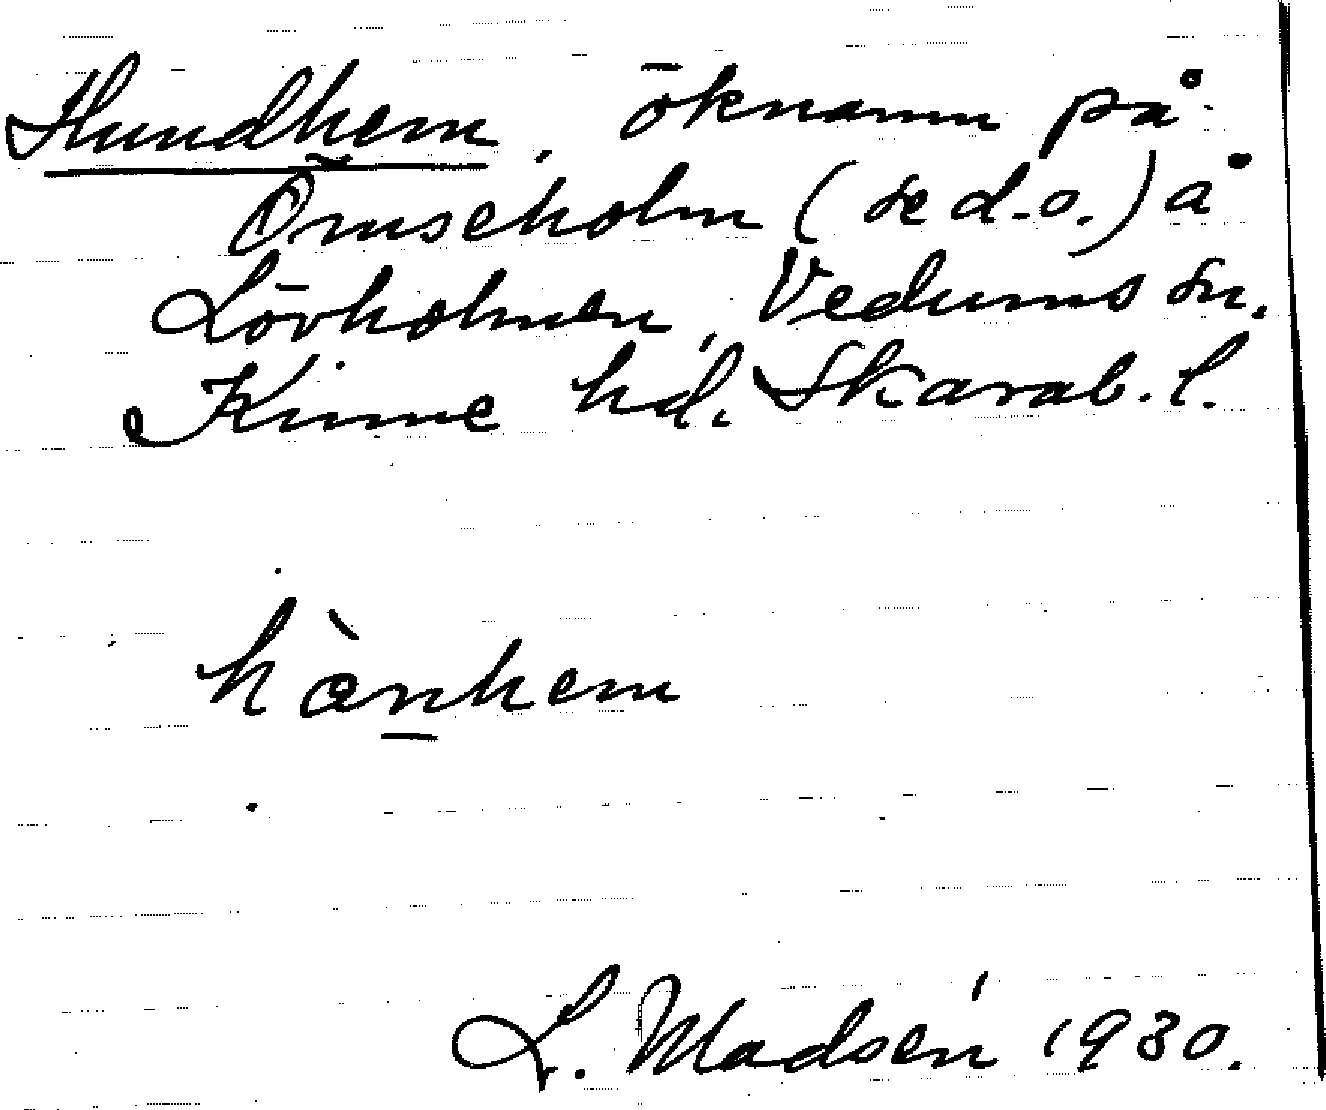 Hundhem, öknamn på
Ömseholm (se d.o.) å
Lövholmen, Vedums sn.
Kinne hd. Skarab. l.
hànhem
L. Madsén 1930.